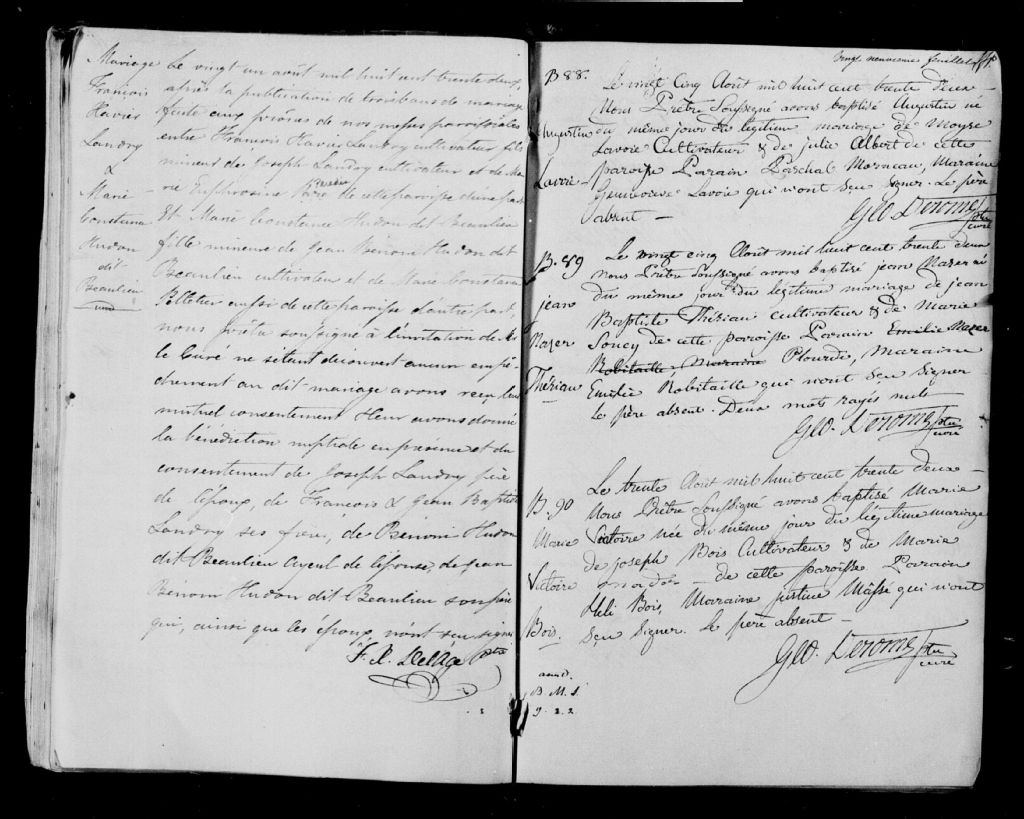 Mariage
François
Xavier
Landry
&
Marie
Constance
Hudon
dit
Beaulieu
Le vingt un août mil huit cent trente deux,
après la publication de trois bans de mariage
faite aux prônes de nos messes paroissiales
entre François Xavier Landry cultivateur fils
mineur de Joseph Landry cultivateur et de Ma-
rie Euphrosine de cette paroisse d'une part
Et Marie Constance Hudon dit Beaulieu
fille mineure de Jean Benom Hudon dit
Beaulieu cultivateur et de Marie Constance
Pelletier aussi de cette paroisse d'autre part,
nous prêtre soussigné à l'invitation de Mr
le Curé ne s'étant découvert aucun empê-
chement au dit mariage avons reçu leur
mutuel consentement & leur avons donné
la bénédiction nuptiale en présence et du
consentement de Joseph Landry père
de l'époux, de François & Jean Baptiste
Landry ses frères, de Benom Hudon
dit Beaulieu ayeul de l'épouse, de Jean
Benom Hudon dit Beaulieu son père
qui, ainsi que les époux, n'ont su signer
Ptre
Vingt neuvieme feuillet
B 88.
Augustin
Lavoie
Le vingt cinq Août mil huit cent trente deux —
Nous Prêtre Soussigné avons baptisé Augustin né
du même jour du légitime mariage de Moyse
Lavoie Cultivateur & de julie Albert de cette
paroisse Parain Paschal Morneau, Maraine
Genevieve Lavoie qui n'ont Sçu Signer. Le père
absent —
Geo. Derome Ptre
curé
B. 89
jean
Nazer
Thériau
Le vingt cinq Août mil huit cent trente deux
nous Prêtre Soussigné avons baptisé jean Nazer né
du même jour du légitime mariage de jean
Baptiste Thériau Cultivateur & de Marie
Soucy de cette paroisse Parain Emilie Nazer
Robitaille, Maraine Plourde, Maraine
Emilie Robitaille qui n'ont Sçu Signer
Le père absent. Deux mots rayés nuls
Geo. Derome Ptre
curé
B. 90
Marie
Victoire
Bois.
Le trente Août mil huit cent trente deux —
Nous Prêtre Soussigné avons baptisé Marie
Victoire née du même jour du légitime mariage
de joseph Bois Cultivateur & de Marie
— de cette paroisse Parain
Heli Bois, Maraine justine Mâssé qui n'ont
Sçu Signer. Le père absent —
Geo. Derome Ptre
curé
B. M. S.